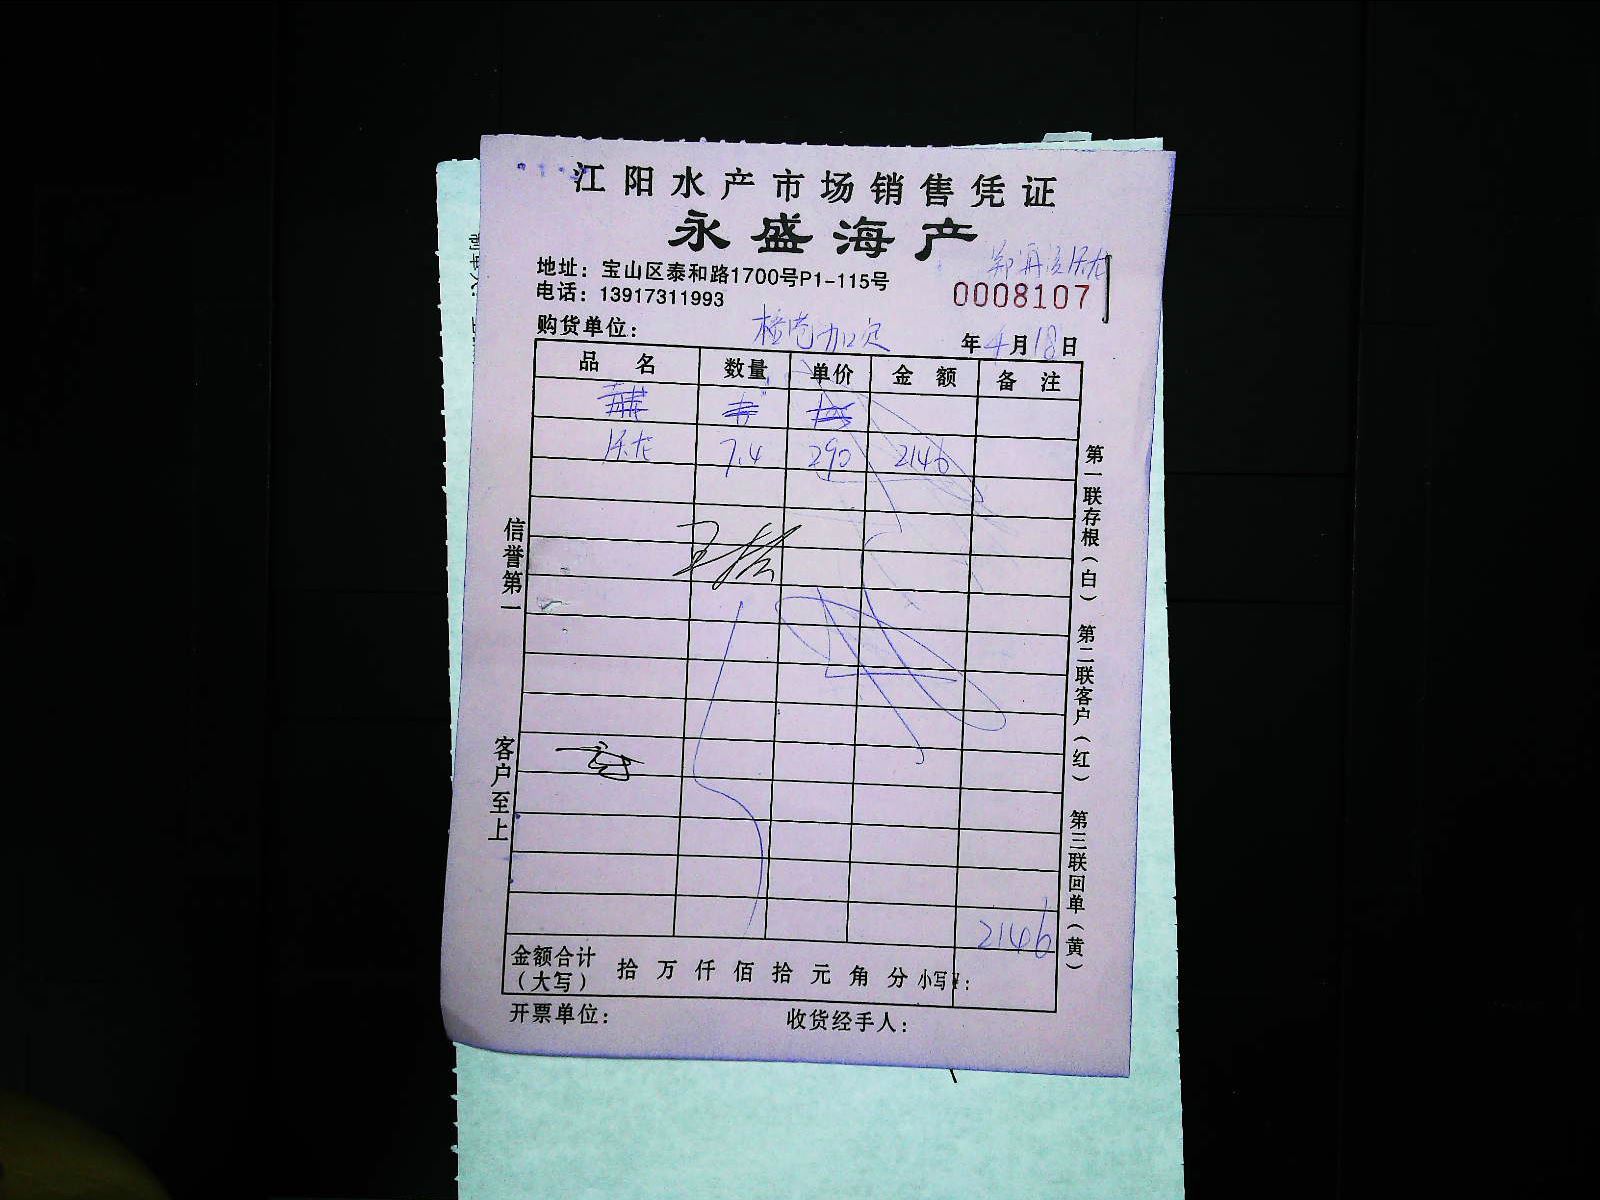 江阳水产市场销售凭证
永盛海产
地址：宝山区泰和路1700号P1-115号
电话：13917311993
0008107
购货单位：
年4月18日
品名 数量 单价 金额 备注
沃龙 7.4 290 2146
信誉第一
客户至上
第一联存根（白） 第二联客户（红） 第三联回单（黄）
2146
金额合计（大写） 拾 万 仟 佰 拾 元 角 分 小写¥：
开票单位： 收货经手人：